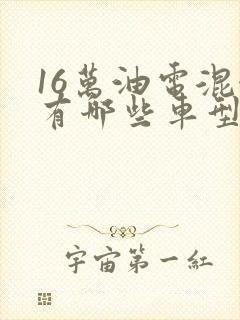 16萬油電混
有哪些車型
宇宙第一紅